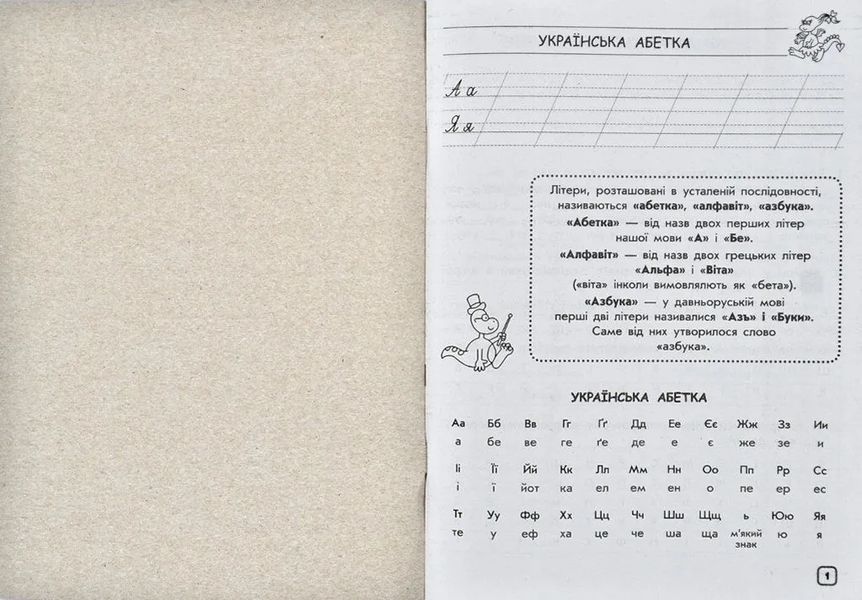 УКРАЇНСЬКА АБЕТКА
А а
Я я
Літери, розташовані в усталеній послідовності,
називаються «абетка», «алфавіт», «азбука».
«Абетка» — від назв двох перших літер
нашої мови «А» і «Бе».
«Алфавіт» — від назв двох грецьких літер
«Альфа» і «Віта»
(«віта» інколи вимовлялють як «бета»).
«Азбука» — у давньоруській мові
перші дві літери називалися «Азъ» і «Буки».
Саме від них утворилося слово
«азбука».
УКРАЇНСЬКА АБЕТКА
Аа Бб Вв Гг Ґґ Дд Ее Єє Жж Зз Ии
а бе ве ге ґе де е є же зе и
Іі Її Йй Кк Лл Мм Нн Оо Пп Рр Сс
і ї йот ка ел ем ен о пе ер ес
Тт Уу Фф Хх Цц Чч Шш Щщ ь Юю Яя
те у еф ха це че ша ща м'який ю я
знак
1